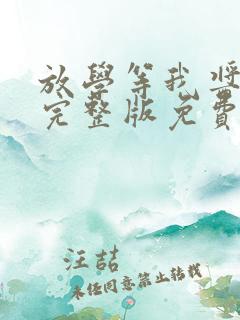 放學等我獎
完整版免費
汪喆
未经同意禁止转载